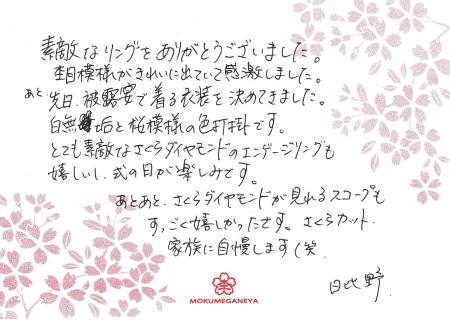 素敵なリングをありがとうございました。
杢目模様がきれいに出ていて感激しました。
あと、先日、被露宴で着る衣装を決めてきました。
白無垢と桜模様の色打掛です。
とても素敵なさくらダイヤモンドのエンゲージリングも
嬉しいし、式の日が楽しみです。
あとあと、さくらダイヤモンドが見れるスコープも
すっごく嬉しかったです。さくらカット、
家族に自慢します(笑
日比野
MOKUMEGANEYA